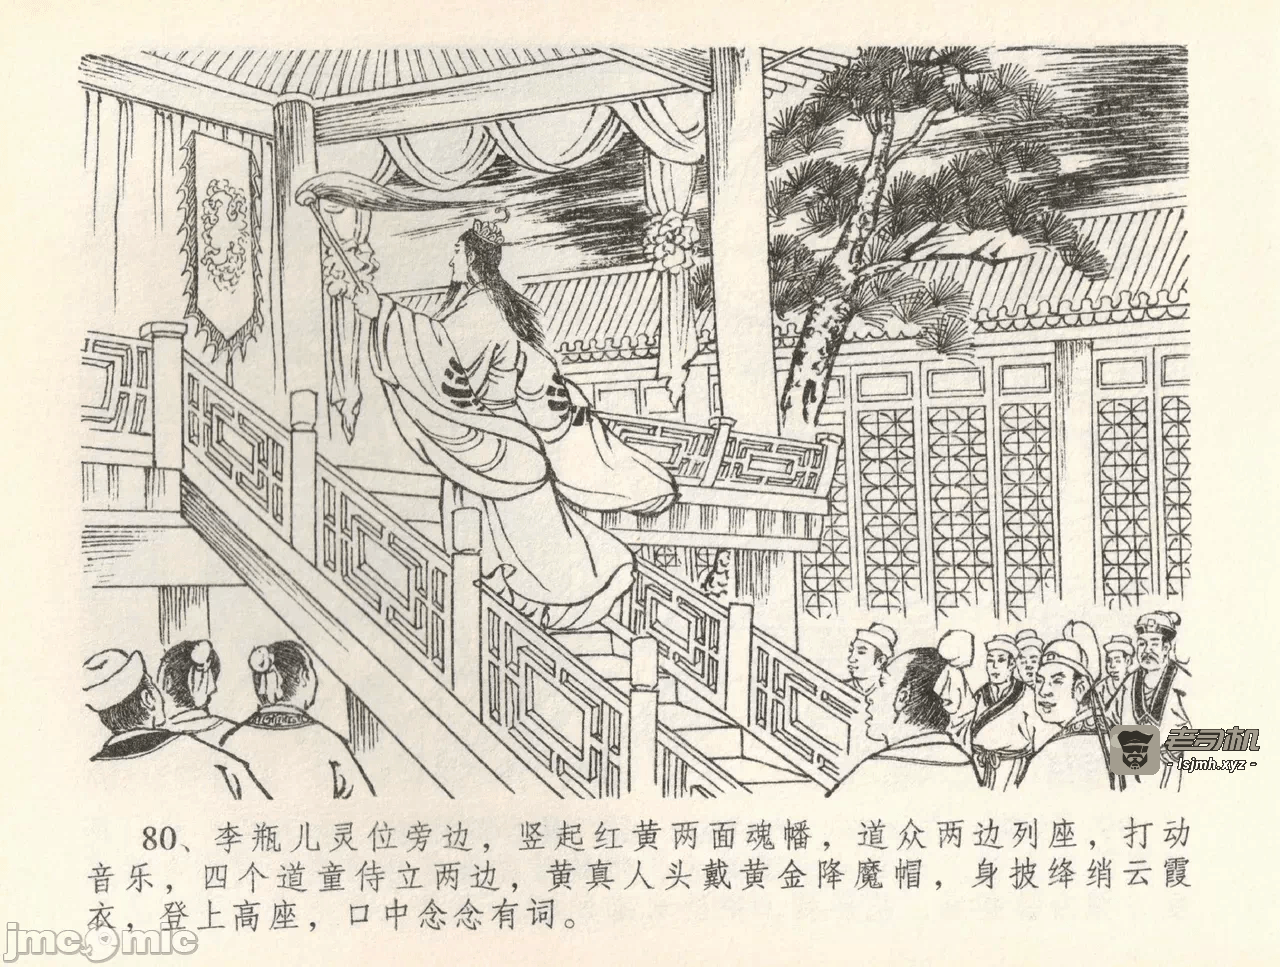 老司机
- lsjmh.xyz -
80、李瓶儿灵位旁边，竖起红黄两面魂幡，道众两边列座，打动
音乐，四个道童侍立两边，黄真人头戴黄金降魔帽，身披绛绡云霞
衣，登上高座，口中念念有词。
jmcomic